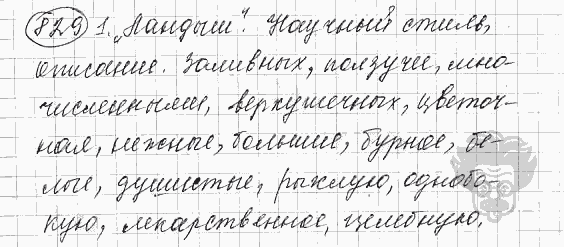 829 1. „Ландыш". Научный стиль,
описание. Заливных, ползучее, мно-
численными, верхушечных, цветоч-
ная, нежные, большие, бурное, бе-
лые, душистые, рыхлую, однобо-
кую, лекарственное, целебную.